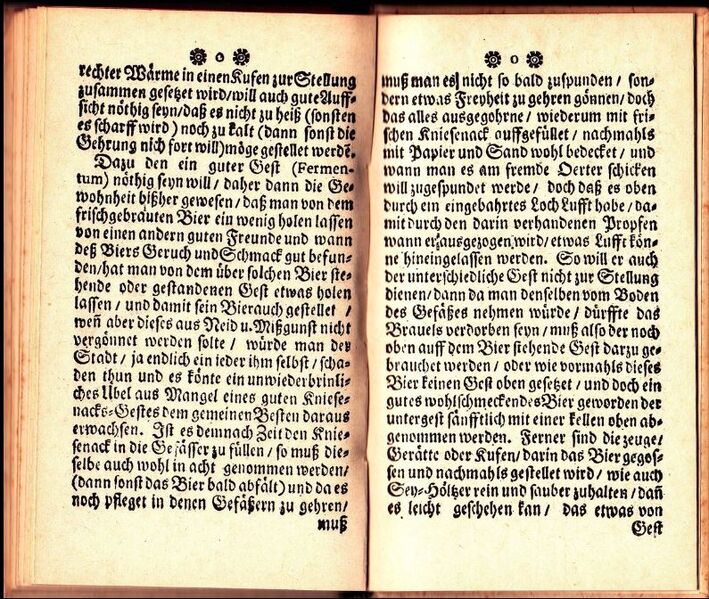 rechter Wärme in einen Kufen zur Stellung
zusammen gesetzet wird/will auch gute Auff-
sicht nöthig seyn/daß es nicht zu heiß (sonsten
es scharff wird) noch zu kalt (dann sonst die
Gehrung nich fort will) möge gestellet werdē.
Dazu den ein guter Gest (Fermen-
tum) nöthig seyn will/ daher dann die Ge-
wohnheit bißher gewesen/ daß man von dem
frisch gebrauten Bier ein wenig holen lassen
von einen andern guten Freunde und wann
deß Biers Geruch und Schmack gut befun-
den/hat man von dem über solchen Bier ste-
hende oder gestandenen Gest etwas holen
lassen/ und damit sein Bier auch gestellet/
weñ aber dieses aus Neid u. Mißgunst nicht
vergönnet werden solte/ würde man der
Stadt/ ja endlich ein ieder ihm selbst/ scha-
den thun und es könte ein unwiederbrinli-
ches Übel aus Mangel eines guten Kniese-
nacks-Gestes dem gemeinen Besten daraus
erwachsen. Ist es demnach Zeit den Knie-
senack in die Gefässer zu füllen/ so muß die-
selbe auch wohl in acht genommen werden/
(dann sonst das Bier bald abfält) und da es
noch pfleget in denen Gefäßern zu gehren/
muß
0
muß man es nicht so bald zuspunden/ son-
dern etwas Freyheit zu gehren gönnen/ doch
das alles ausgegohrne/ wiederum mit fri-
schen Kniesenack auffgefüllet/ nachmahls
mit Papier und Sand wohl bedecket/ und
wann man es am fremde Oerter schicken
will zugespundet werde/ doch daß es oben
durch ein eingebahrtes Loch Lufft habe/ da-
mit durch den darin verhandenen Propfen
wann er ausgezogen wird/ etwas Lufft kön-
ne hineingelassen werden. So will er auch
der unterschiedliche Gest nicht zur Stellung
dienen/ dann da man denselben vom Boden
des Gefäßes nehmen würde/ dürffte das
Brauels verdorben seyn/ muß also der noch
oben auff dem Bier stehende Gest darzu ge-
brauchet werden/ oder wie vormahls dieses
Bier keinen Gest oben gesetzet/ und doch ein
gutes wohlschmeckendes Bier geworden der
untergest sänfftlich mit einer kellen oben ab-
genommen werden. Ferner sind die zeuge/
Gerätte oder Kufen/ darin das Bier gegos-
sen und nachmahls gestellet wird/ wie auch
Sey-Höltzer rein und sauber zuhalten/ dañ
es leicht geschehen kan/ das etwas von
Gest